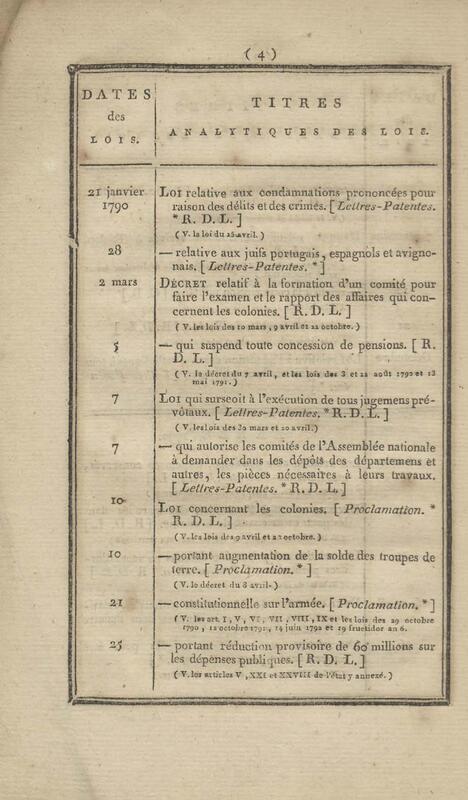 ( 4 )
DATES
des
LOIS.
TITRES
ANALYTIQUES DES LOIS.
21 janvier
1790
LOI relative aux condamnations prononcées pour
raison des délits et des crimes. [ Lettres-Patentes.
* R. D. L. ]
( V. la loi du 15 avril. )
28
— relative aux juifs portugais, espagnols et avigno-
nais. [ Lettres-Patentes. * ]
2 mars
DÉCRET relatif à la formation d'un comité pour
faire l'examen et le rapport des affaires qui con-
cernent les colonies. [ R. D. L. ]
( V. les lois des 10 mars, 9 avril et 22 octobre. )
5
— qui suspend toute concession de pensions. [ R.
D. L. ]
( V. le décret du 7 avril, et les lois des 3 et 22 août 1790 et 13
mai 1791. )
7
LOI qui surseoit à l'exécution de tous jugemens pré-
vôtaux. [ Lettres-Patentes. * R. D. L. ]
( V. les lois des 30 mars et 20 avril. )
7
— qui autorise les comités de l'Assemblée nationale
à demander dans les dépôts des départemens et
autres, les pièces nécessaires à leurs travaux.
[ Lettres-Patentes. * R. D. L. ]
10
LOI concernant les colonies. [ Proclamation. *
R. D. L. ]
( V. les lois des 9 avril et 22 octobre. )
10
— portant augmentation de la solde des troupes de
terre. [ Proclamation. * ]
( V. le décret du 8 avril. )
21
— constitutionnelle sur l'armée. [ Proclamation. * ]
( V. les art. I, V, VI, VII, VIII, IX et les lois des 29 octobre
1790, 12 octobre 1791, 14 juin 1792 et 19 fructidor an 6.
25
— portant réduction provisoire de 60 millions sur
les dépenses publiques. [ R. D. L. ]
( V. les articles V, XXI et XXVIII de l'état y annexé. )